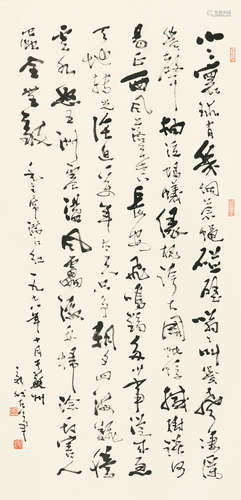 小小寰球有幾個蒼蠅碰壁嗡嗡叫幾聲淒厲
幾聲抽泣螞蟻緣槐誇大國蚍蜉撼樹談何
易正西風落葉下長安飛鳴鏑多少事從來急
天地轉光陰迫一萬年太久只爭朝夕四海翻騰
雲水怒五洲震盪風雷激要掃除一切害人
蟲全無敵
毛主席滿江紅一九七六年十月於蘇州